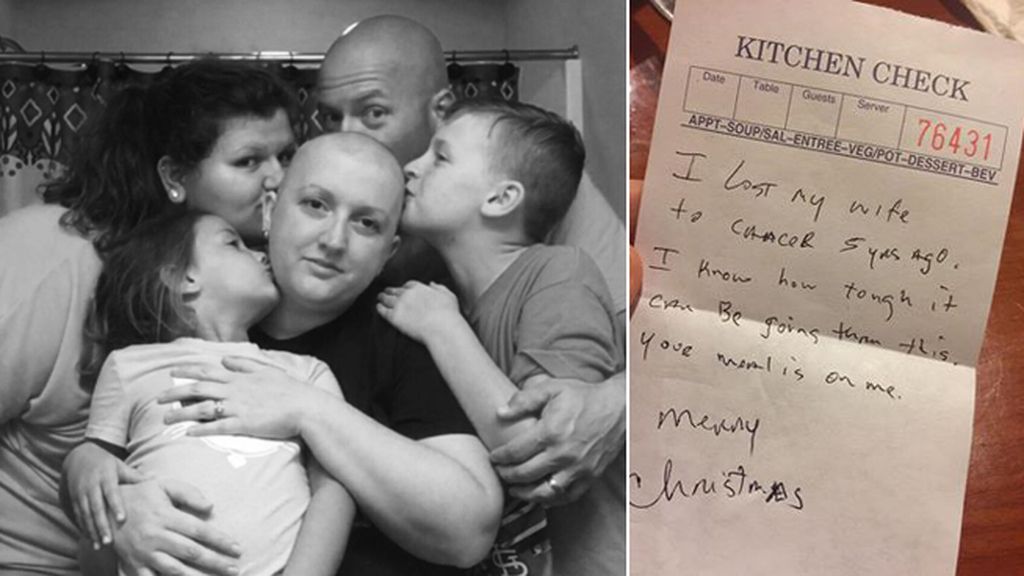 KITCHEN CHECK
Date Table Guests Server
76431
APPT-SOUP/SAL-ENTREE-VEG/POT-DESSERT-BEV
I Lost my wife
to CANCER 5 yrs Ago.
I know how tough it
can Be going thru this.
your meal is on me.
Merry
Christmas